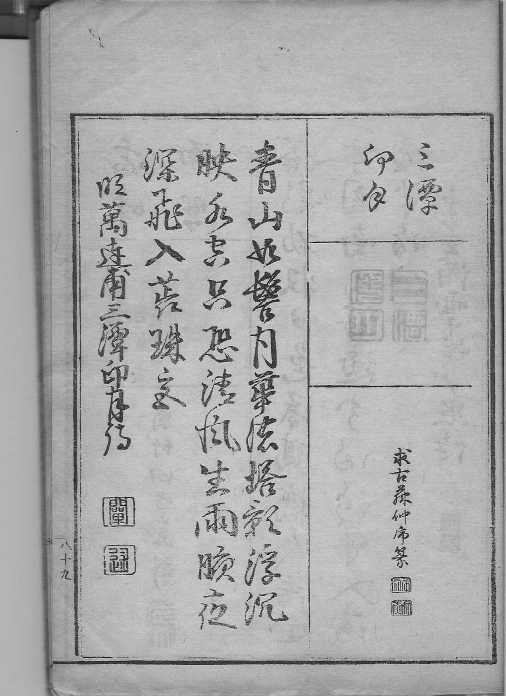 三潭
印月
求古
青山如髻月華濃塔影浮沉
映水空只恐清風生兩腋夜
深飛入蕊珠宮
明萬達甫三潭印月詩
八十九